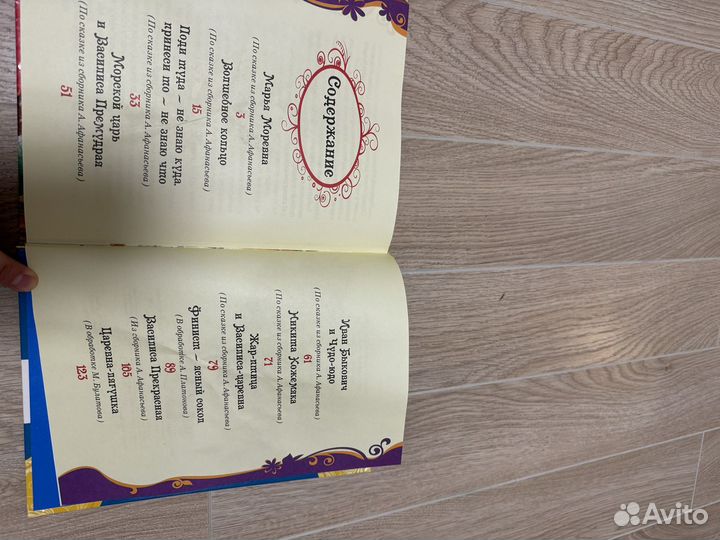 Содержание
Марья Моревна
(По сказке из сборника А. Афанасьева)
3
Волшебное кольцо
(По сказке из сборника А. Афанасьева)
15
Поди туда – не знаю куда,
принеси то – не знаю что
(По сказке из сборника А. Афанасьева)
33
Морской царь
и Василиса Премудрая
(По сказке из сборника А. Афанасьева)
51
Иван Быкович
и Чудо-юдо
(По сказке из сборника А. Афанасьева)
61
Никита Кожемяка
(По сказке из сборника А. Афанасьева)
71
Жар-птица
и Василиса-царевна
(По сказке из сборника А. Афанасьева)
79
Финист – ясный сокол
(В обработке А. Платонова)
89
Василиса Прекрасная
(Из сборника А. Афанасьева)
105
Царевна-лягушка
(В обработке М. Булатова)
123
Avito